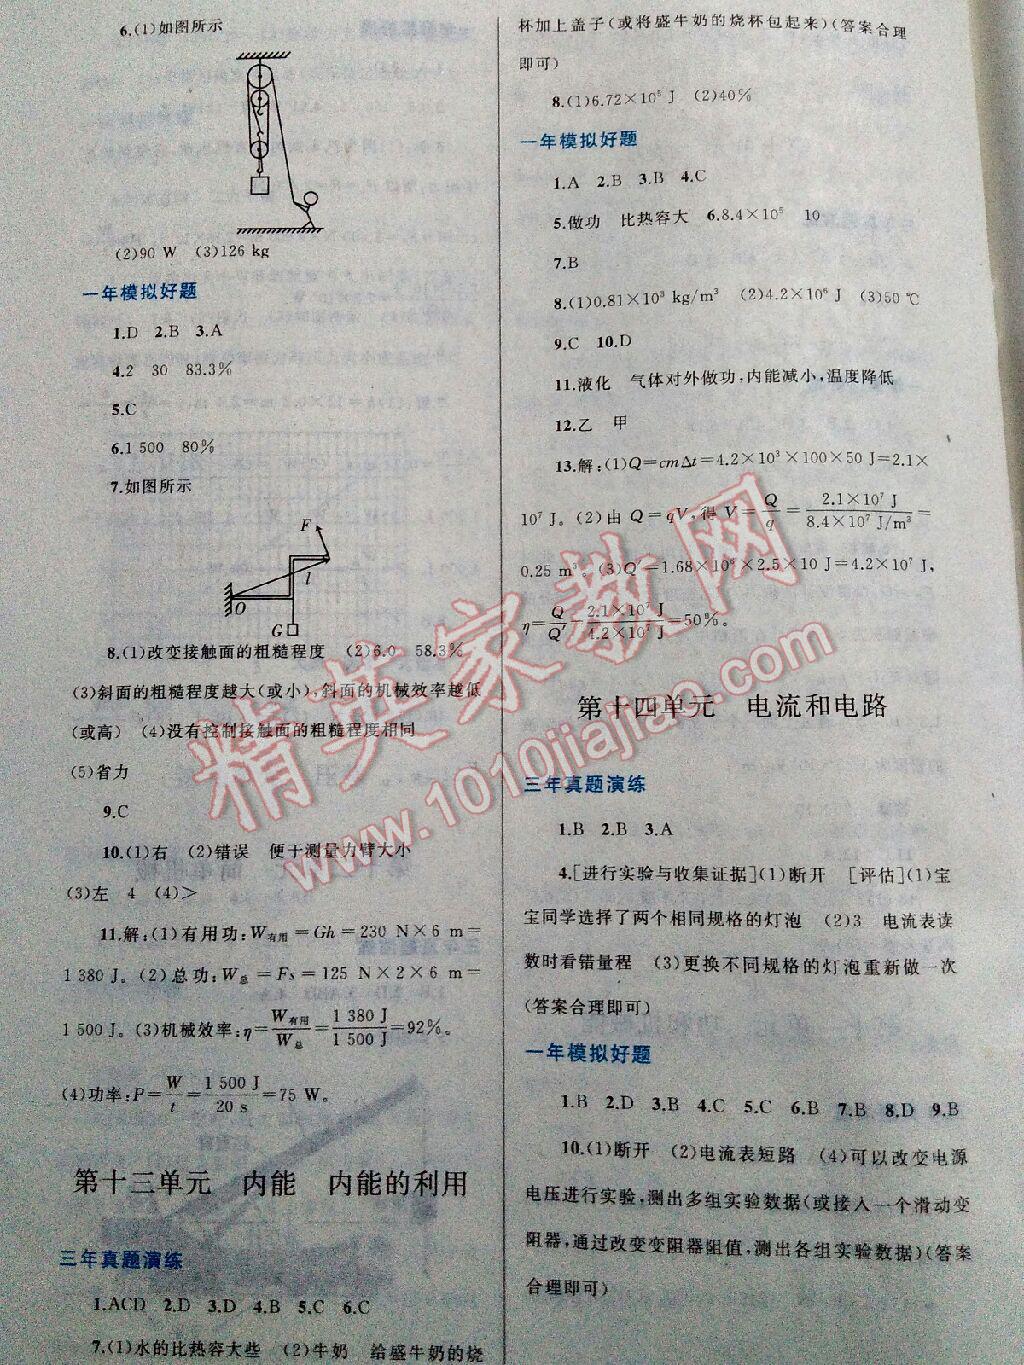 6.(1)如图所示
(2)90 W (3)126 kg
一年模拟好题
1.D 2.B 3.A
4.2 30 83.3%
5.C
6.1 500 80%
7.如图所示
F
l
O
G
8.(1)改变接触面的粗糙程度 (2)6.0 58.3%
(3)斜面的粗糙程度越大(或小),斜面的机械效率越低
(或高) (4)没有控制接触面的粗糙程度相同
(5)省力
9.C
10.(1)右 (2)错误 便于测量力臂大小
(3)左 4 (4)>
11.解:(1)有用功:W有用=Gh=230 N×6 m=
1 380 J。(2)总功:W总=Fs=125 N×2×6 m=
1 500 J。(3)机械效率:η=W有用/W总=1 380 J/1 500 J=92%。
(4)功率:P=W/t=1 500 J/20 s=75 W。
第十三单元 内能 内能的利用
三年真题演练
1.ACD 2.D 3.D 4.B 5.C 6.C
7.(1)水的比热容大些 (2)牛奶 给盛牛奶的烧
杯加上盖子(或将盛牛奶的烧杯包起来)(答案合理
即可)
8.(1)6.72×10⁵ J (2)40%
一年模拟好题
1.A 2.B 3.B 4.C
5.做功 比热容大 6.8.4×10⁵ 10
7.B
8.(1)0.81×10³ kg/m³ (2)4.2×10⁶ J (3)50 ℃
9.C 10.D
11.液化 气体对外做功,内能减小,温度降低
12.乙 甲
13.解:(1)Q=cmΔt=4.2×10³×100×50 J=2.1×
10⁷ J。(2)由 Q=qV,得 V=Q/q=2.1×10⁷ J/8.4×10⁷ J/m³=
0.25 m³。(3)Q′=1.68×10⁶×2.5×10 J=4.2×10⁷ J,
η=Q/Q′=2.1×10⁷ J/4.2×10⁷ J=50%。
第十四单元 电流和电路
三年真题演练
1.B 2.B 3.A
4.[进行实验与收集证据](1)断开 [评估](1)宝
宝同学选择了两个相同规格的灯泡 (2)3 电流表读
数时看错量程 (3)更换不同规格的灯泡重新做一次
(答案合理即可)
一年模拟好题
1.B 2.D 3.B 4.C 5.C 6.B 7.B 8.D 9.B
10.(1)断开 (2)电流表短路 (4)可以改变电源
电压进行实验,测出多组实验数据(或接入一个滑动变
阻器,通过改变变阻器阻值,测出各组实验数据)(答案
合理即可)
精英家教网
www.1010jiajiao.com